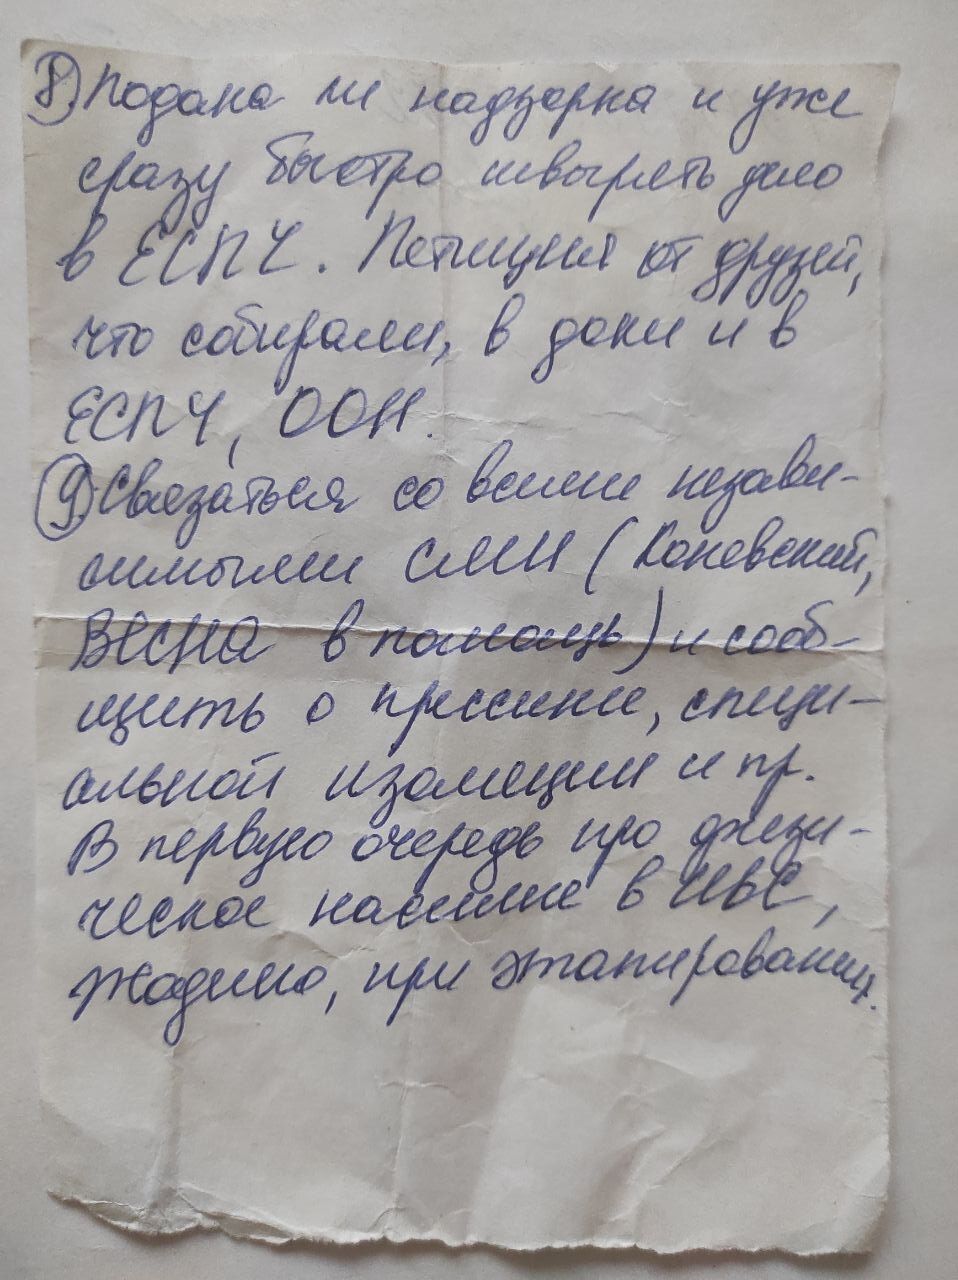 8) Подана ли надзорка и уже
сразу быстро швырять дело
в ЕСПЧ. Петиция от друзей,
что собирали, в доки и в
ЕСПЧ, ООН.
9) Связаться со всеми незави-
симыми СМИ (Каневский,
ВЕСНА в помощь) и сооб-
щить о прессинге, специ-
альной изоляции и пр.
В первую очередь про физи-
ческое насилие в ИВС,
Жодино, при этапировании.